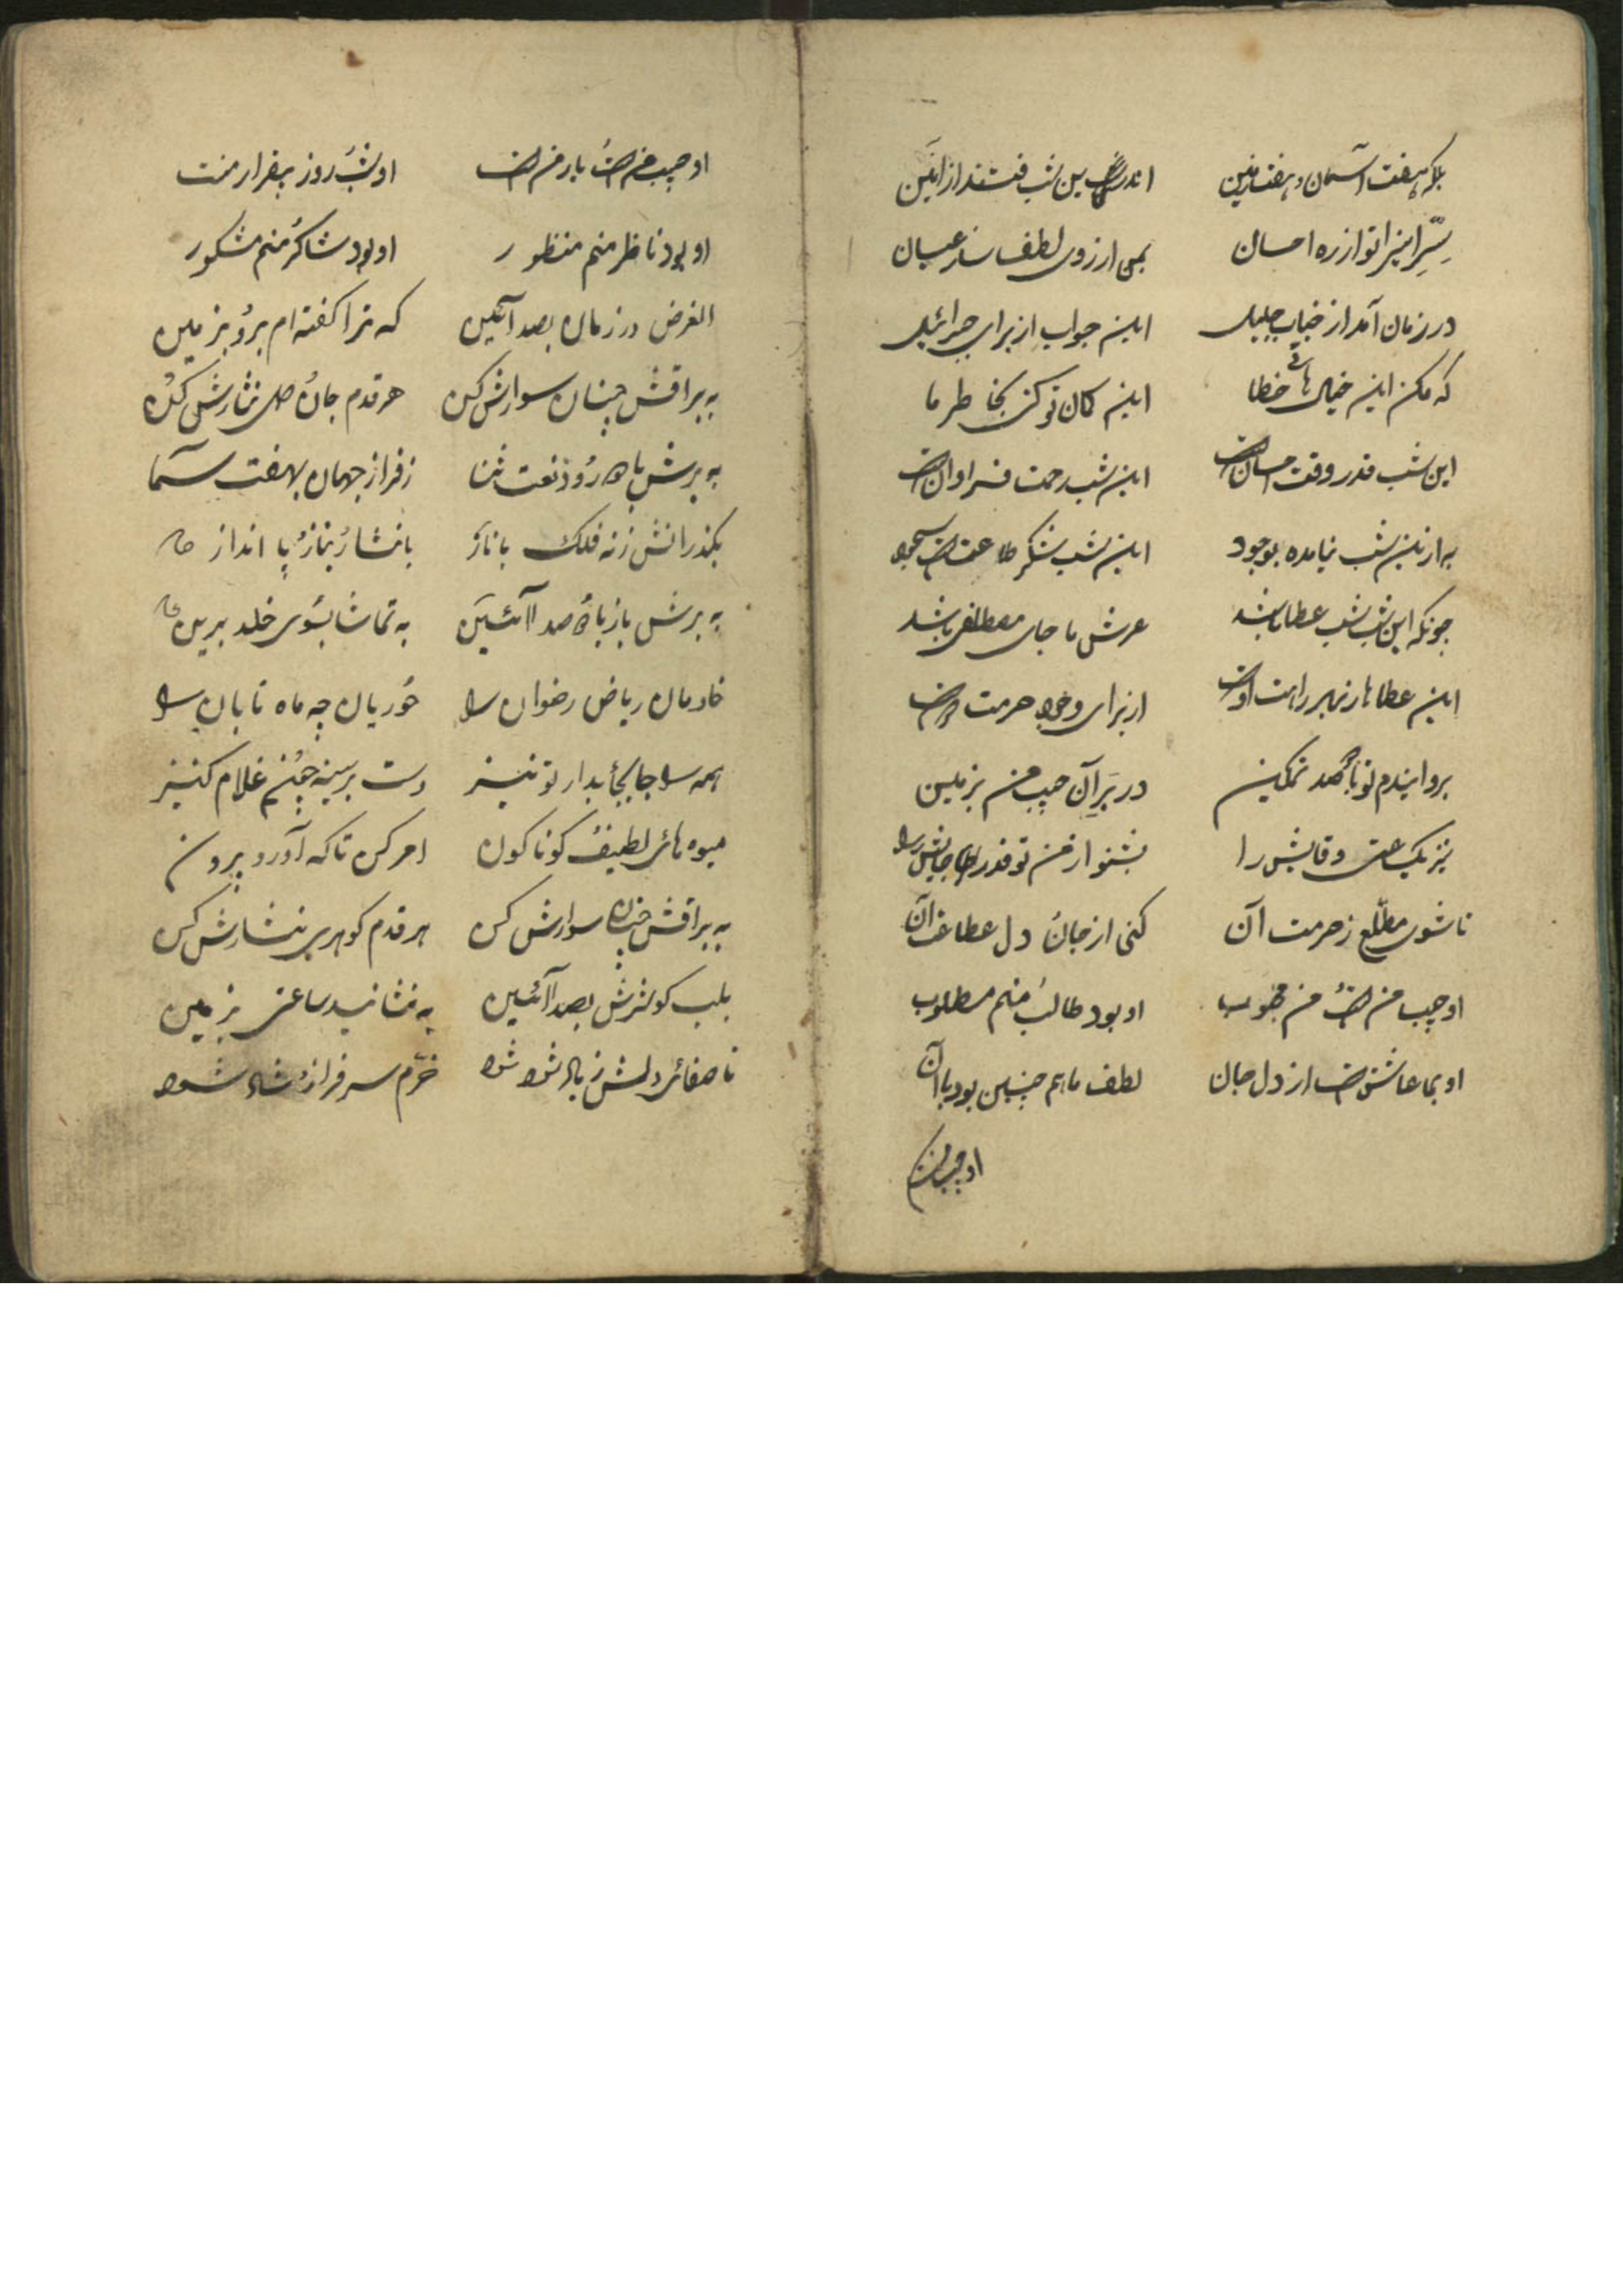 بلکه هفت آسمان و هفت زمین اندرین شب فتند از این
سِرّ این را تو از ره احسان بمن از روی لطف ساز عیان
در زمان آمد از جناب جلیل این جواب از برای جبرائیل
که مکن این خیال هائے خطا این کمان تو کن بخاطر ما
این شب قدر و وقت احسانست این شب رحمت فراوانست
به ازین شب نیامده بوجود این شب شکر طاعتست سجود
چونکه این شب شب عطا باشد عرش ما جای مصطفی باشد
این عطاها ز بهر راهت اوست از برای وجود حرمت اوست
برو ایندم تو با صد تمکین در برِ آن حبیب من بزمین
نیز یک ساعت وقایش را بشنو از من تو قدر
تا شوی مطلّع ز حرمت آن کنی از جان و دل اطاعت آن
او حبیب منست و من محبوب او بود طالب و منم مطلوب
او بما عاشق است از دل جان لطف ما هم چنین بود با آن
او حبیب منست
او حبیب منست و یار منست او شب و روز بیقرار منست
او بود ناظر منم منظور او بود شاکر و منم مشکور
الغرض در زمان بصد آئین که ترا گفته ام برو بزمین
به براقش چنان سوارش کن هر قدم جان و دل نثارش کن
به برش با درود و نعت ثنا ز فراز جهان بهفت سما
بکذرانش ز نه فلک با ناز با نثار و نیاز و پا انداز
به برش باز با صد آئین به تماشا بسوی خلد برین
خادمان ریاض رضوان را حوریان چه ماه تابان را
همه را جابجا بدار تو نیز دست بر سینه چون غلام کنیز
میوه هائی لطیف کوناکون امر کن تا که آورد برون
به براقش چنان سوارش کن هر قدم کوهری نثارش کن
بلب کوثرش بصد آئین به نشانید ساعتی بزمین
تا صفائی دلش زیاد شود خرّم سرفراز و شاد شود